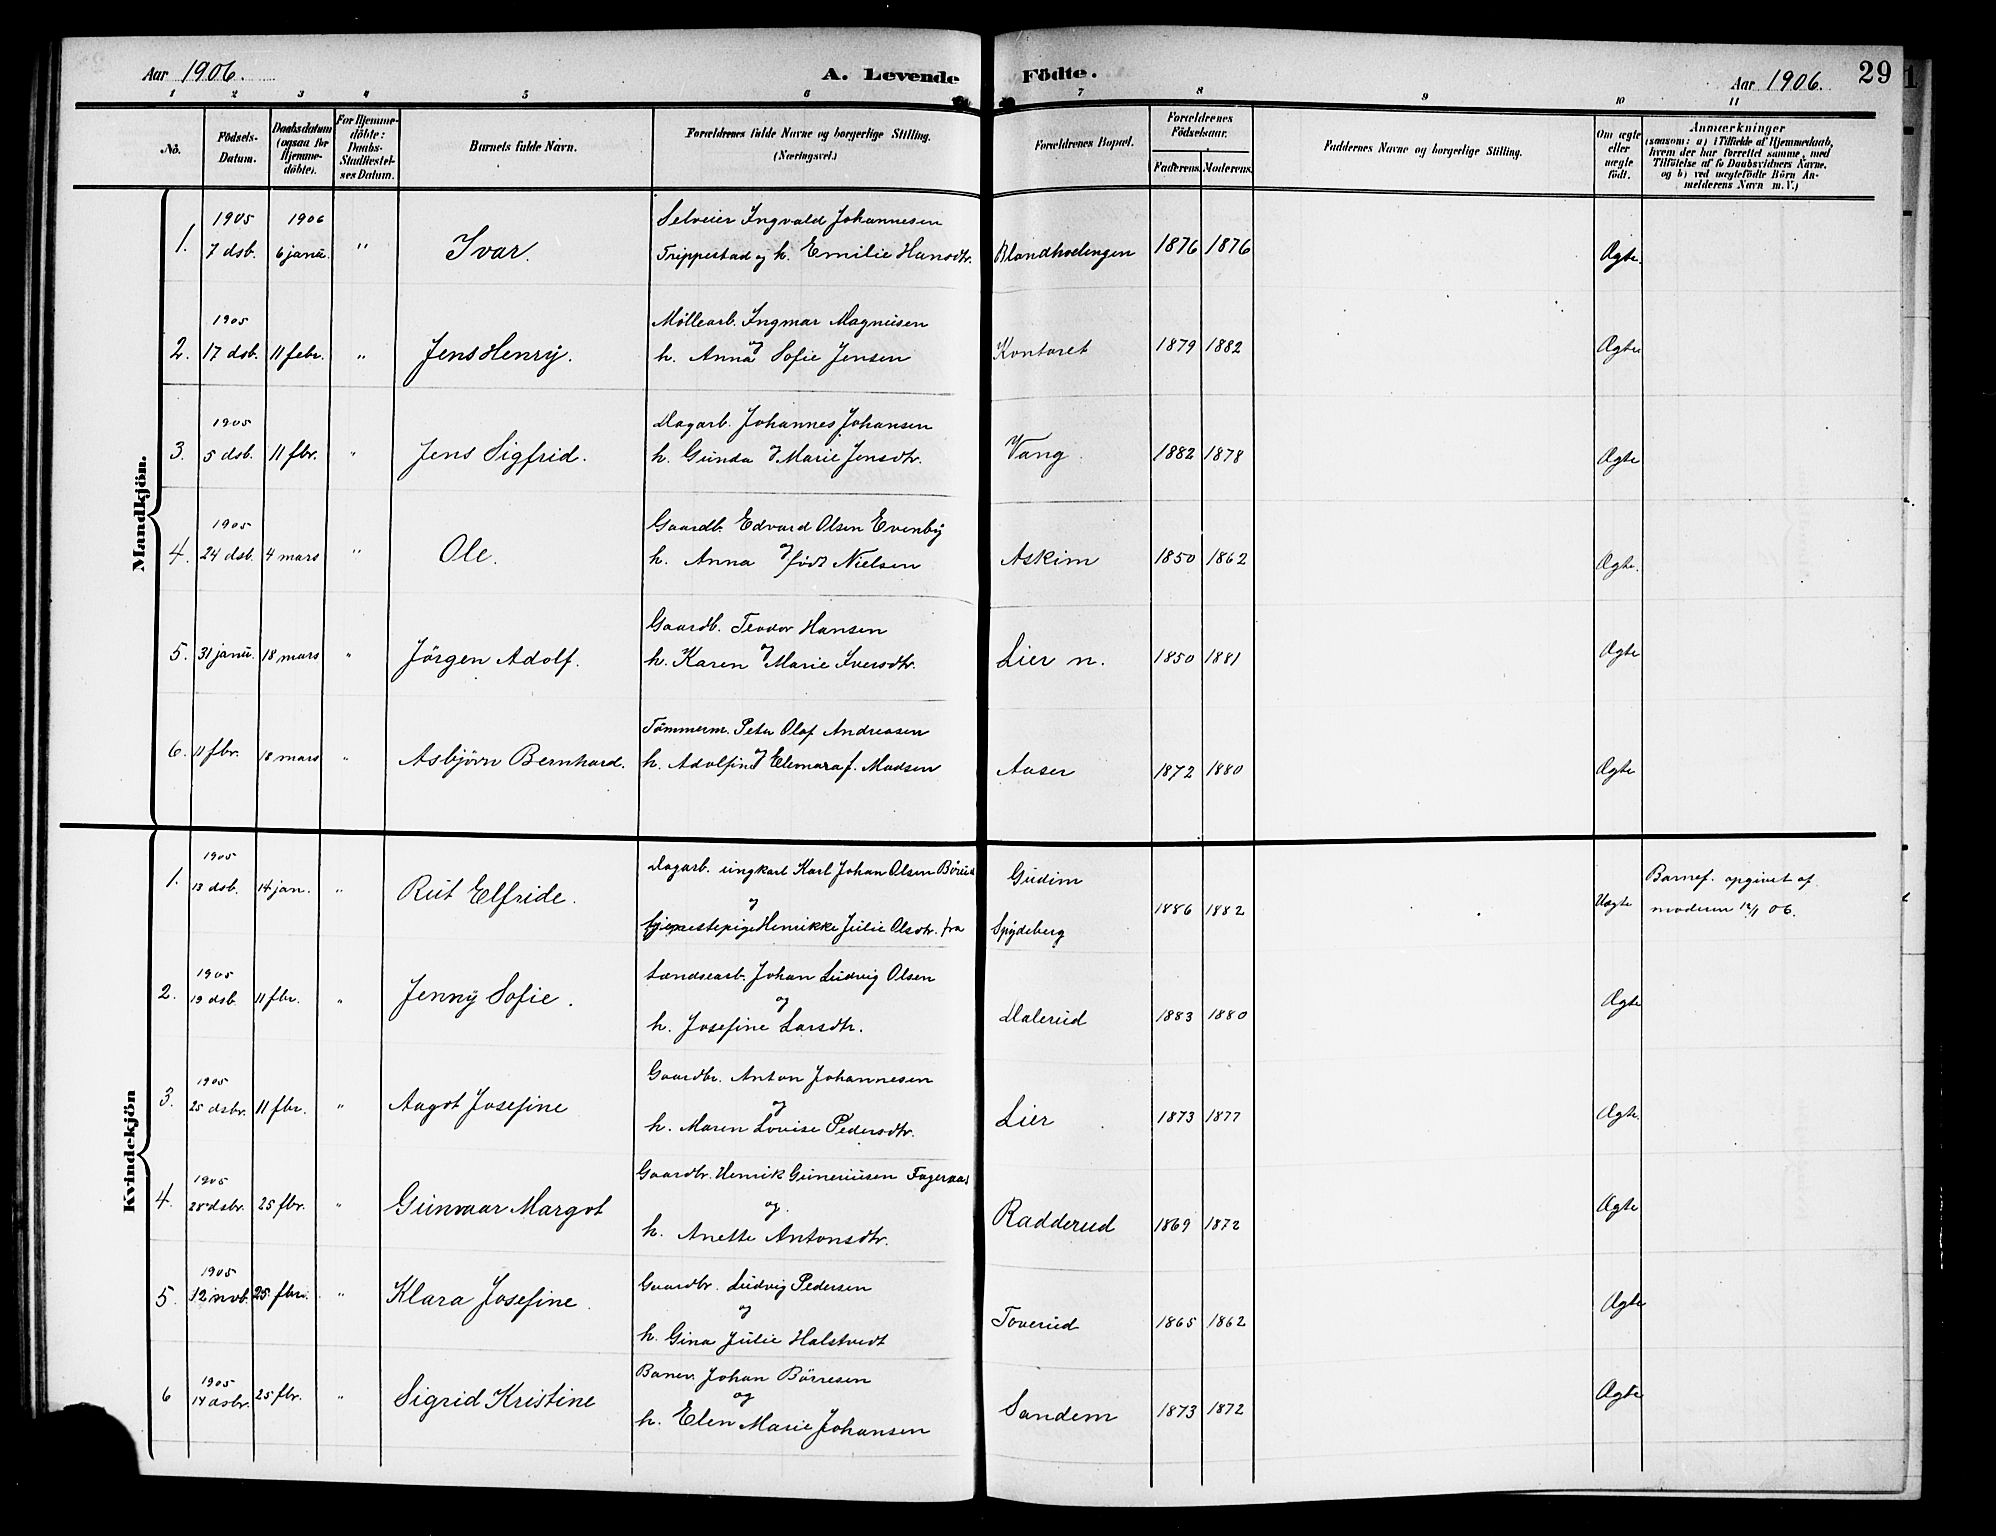 Aar 1906. A. Levende Födte. Aar 1906. 29
1 2 3 4 5 6 7 8 9 10 11
No.
Födsels-Datum.
Daabsdatum (ogsaa for Hjemme-döbte).
For Hjemme-döbte: Daabs-Stadfæstel-ses Datum.
Barnets fulde Navn.
Forældrenes fulde Navne og borgerlige Stilling. (Næringsvei.)
Forældrenes Bopæl.
Forældrenes Födselsaar.
Faderens. Moderens.
Faddernes Navne og borgerlige Stilling.
Om ægte eller uægte födt.
Anmærkninger
(saasom: a) i Tilfælde af Hjemmedaab, hvem der har forrettet samme, med Tilföielse af to Daabsvidners Navne, og b) ved uægtefödte Börn Anmelderens Navn m. V.)
Mandkjön.
1905 1906 Selveier Ingvald Johannesen
1. 7 dsb. 6 janu. " Ivar. Trippestad og h. Emilie Hansdtr. Blandhoelingen 1876 1876 Ægte.
1905 Möllearb. Ingmar Magnusen
og
2. 17 dsb. 11 febr. " Jens Henry. h. Anna Sofie Jensen Kontoret 1879 1882 Ægte
1905 Dagarb. Johannes Johansen
3. 5 dsb. 11 fbr. " Jens Sigfrid. h. Gunda og Marie Jensdtr. Vang. 1882 1878 Ægte
1905 Gaardb. Edvard Olsen Evenby
4. 24 dsb. 4 mars " Ole. h. Anna og född Nielsen Askim 1850 1862 Ægte.
Gaardb. Teodor Hansen
5. 31 janu. 18 mars " Jörgen Adolf. h. Karen og Marie Iversdtr. Lier n. 1850 1881 Ægte
Tömmerm. Peter Olaf Andreasen
6. 11 fbr. 18 mars " Asbjörn Bernhard. h. Adolfine og Elemara f. Madsen Aaser 1872 1880 Ægte
Kvindekjön
1905 Dagarb. ungkarl Karl Johan Olsen Börud Gudim
1. 13 dsb. 14 jan. " Rut Elfride. og 1886 1882 Uægte Barnef. opgivet af
tjenestepige Henrikke Julie Olsdtr. fra Spydeberg moderen 12/1 06.
1905 Lændsearb. Johan Ludvig Olsen
2. 19 dsb. 11 fbr. " Jenny Sofie. og Dalerud 1883 1880 Ægte
h. Josefine Larsdtr.
1905 Gaardbr. Anton Johannesen
3. 25 dsbr. 11 fbr. " Aagot Josefine og Lier 1873 1877 Ægte.
h. Maren Lovise Pedersdtr.
1905 Gaardbr. Henrik Guneriusen Fageraas
4. 28 dsbr. 25 fbr. " Gunvaar Margot og. Radderud 1869 1872 Ægte
h. Anette Antonsdtr.
1905 Gaardbr. Ludvig Pedersen
5. 12 nvb. 25 fbr. " Klara Josefine. og Toverud 1865 1862 Ægte
h. Gina Julie Halstvedt
1905 Banev. Johan Börresen
6 14 dsbr. 25 fbr. " Sigrid Kristine og Sandem 1873 1872 Ægte
h. Elen Marie Johansen